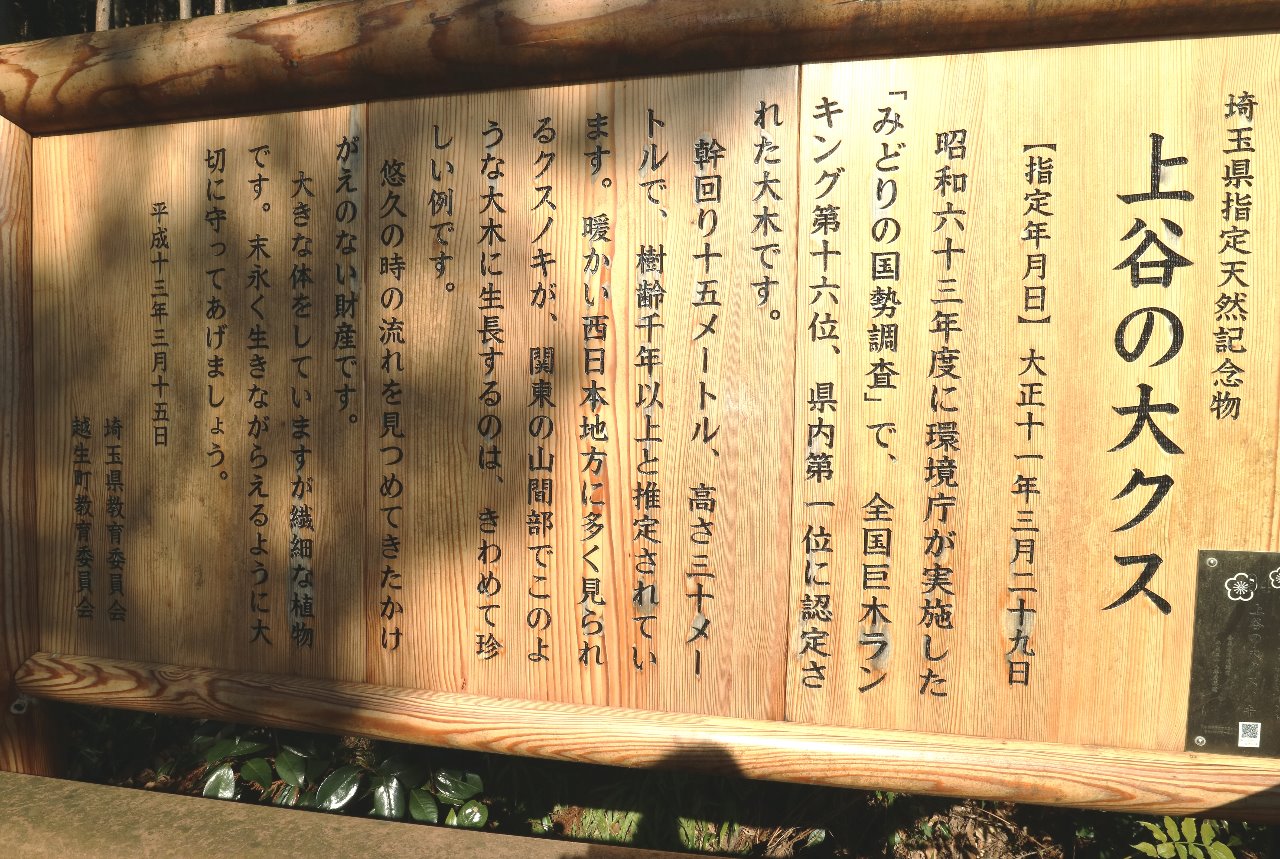 埼玉県指定天然記念物
上谷の大クス
【指定年月日】大正十一年三月二十九日
昭和六十三年度に環境庁が実施した
「みどりの国勢調査」で、全国巨木ラン
キング第十六位、県内第一位に認定さ
れた大木です。
幹回り十五メートル、高さ三十メー
トルで、樹齢千年以上と推定されてい
ます。暖かい西日本地方に多く見られ
るクスノキが、関東の山間部でこのよ
うな大木に生長するのは、きわめて珍
しい例です。
悠久の時の流れを見つめてきたかけ
がえのない財産です。
大きな体をしていますが繊細な植物
です。末永く生きながらえるように大
切に守ってあげましょう。
平成十三年三月十五日
埼玉県教育委員会
越生町教育委員会